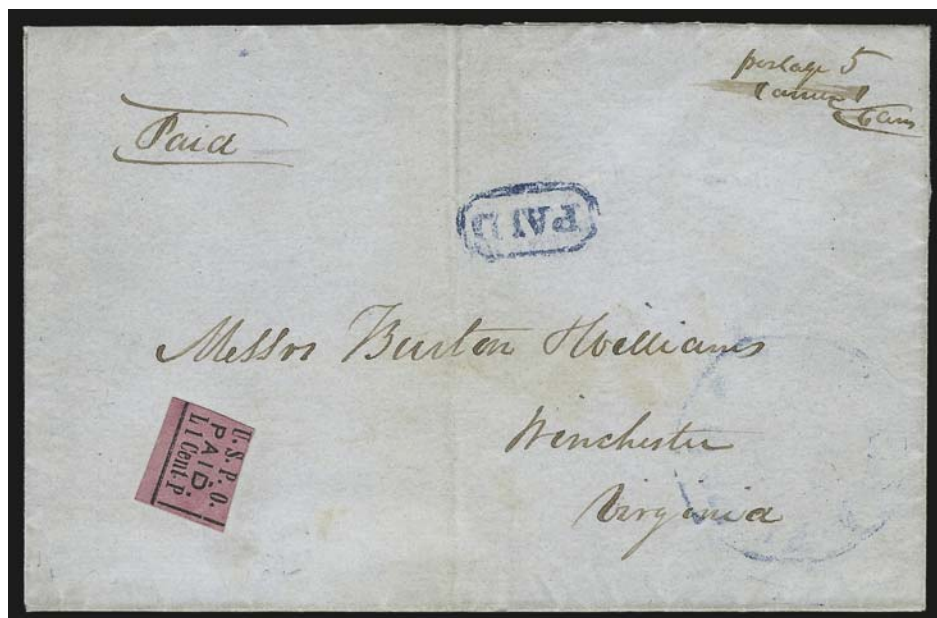 postage 5
Paid
PAID
Messrs Burton & Williams
Winchester
Virginia
U.S.P.O.
PAID.
L 1 Cent. P.